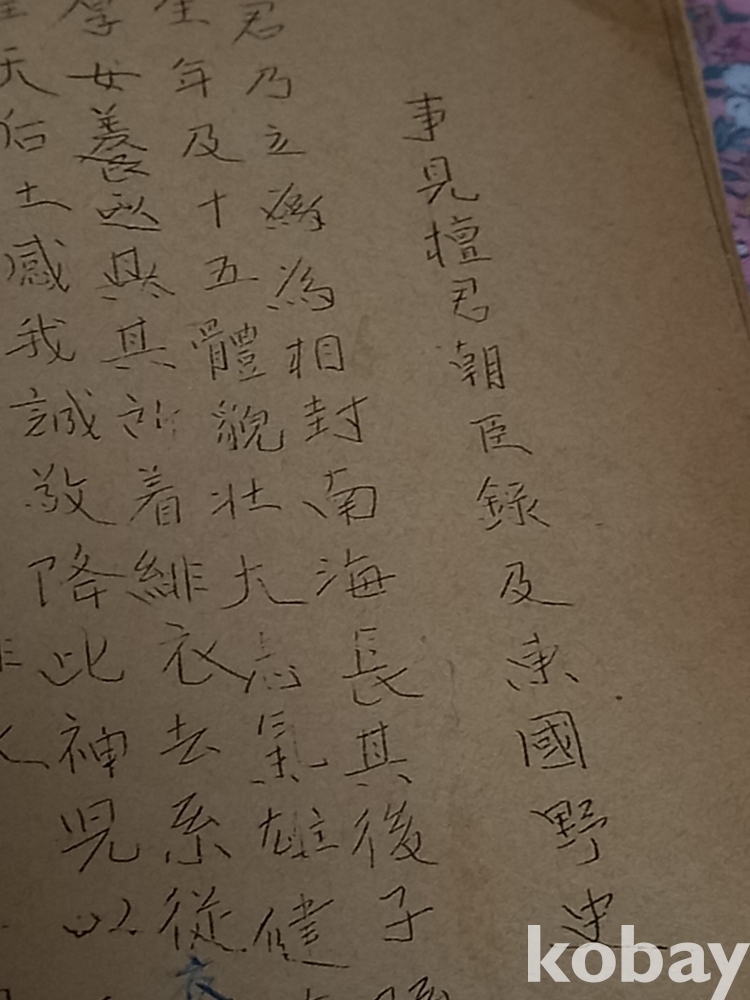 事見檀君朝臣錄及東國野史
君乃立為相封南海長其後子
年及十五體貌壯大志氣雄健
女養與其所着緋衣去系從
衣
天后土感我誠敬降此神児以
kobay